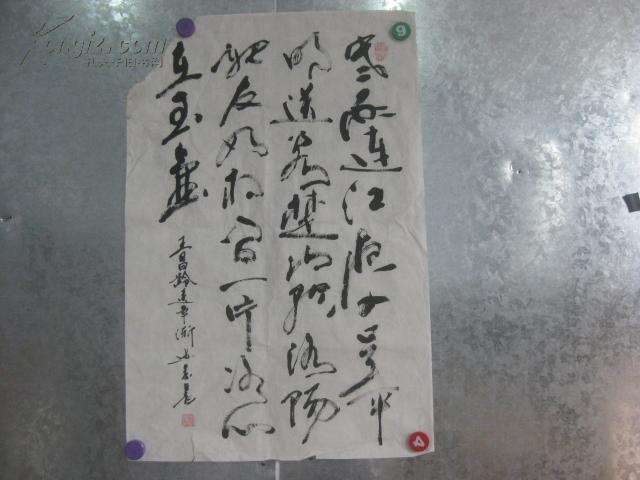 寒雨连江夜入吴平
明送客楚山孤洛阳
亲友如相问一片冰心
在玉壶
王昌龄
Kongfz.com
孔夫子旧书网
6
4